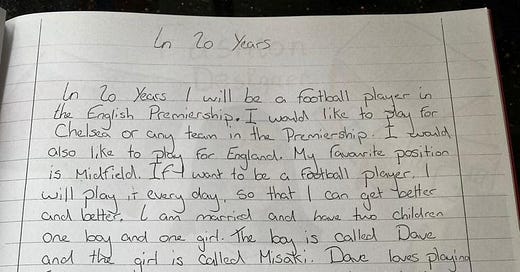 In 20 Years
In 20 Years I will be a football player in
the English Premiership. I would like to play for
Chelsea or any team in the Premiership. I would
also like to play for England. My favourite position
is Midfield. If I want to be a football player, I
will play it every day, so that I can get better
and better. I am married and have two children
one boy and one girl. The boy is called Dave
and the girl is called Misaki. Dave loves playing